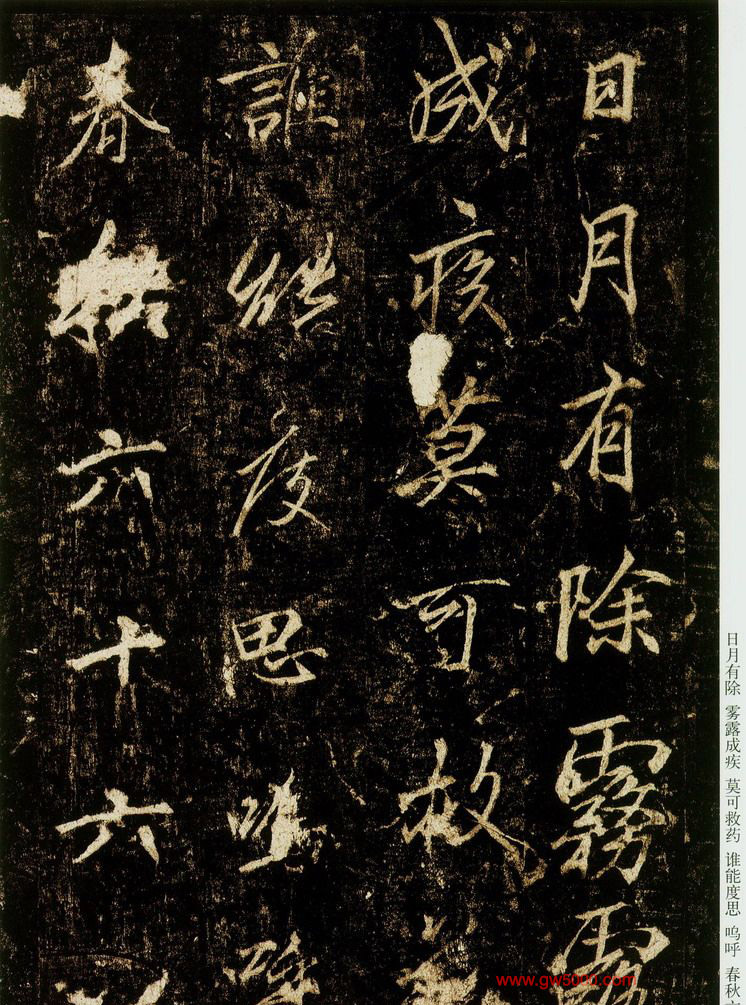 日月有除霧露
成疾莫可救藥
誰能度思嗚呼
春秋六十六
日月有除 雾露成疾 莫可救药 谁能度思 呜呼 春秋
www.gw5000.com